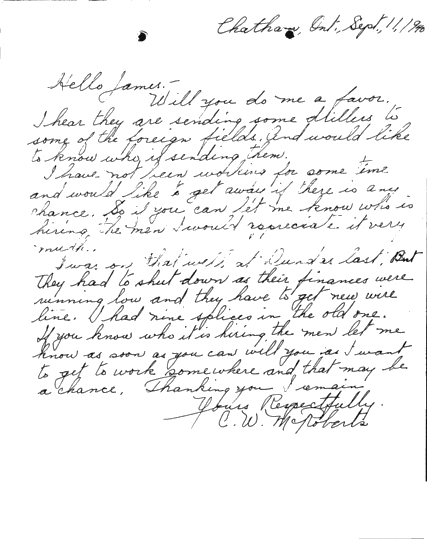 Chatham, Ont., Sept., 11, / 1940
Hello James.-
Will you do me a favor.
I hear they are sending some drillers to
some of the foreign fields. And would like
to know who is sending them.
I have not been working for some time
and would like to get away if there is any
chance. So if you can let me know who is
hiring the men I would appreciate it very
much.
I was on that well at Dundas last. But
they had to shut down as their finances were
running low and they have to get new wire
line. I had nine splices in the old one.
If you know who it is hiring the men let me
know as soon as you can will you as I want
to get to work somewhere and that may be
a chance. Thanking you I remain
Yours Respectfully.
C. W. McRoberts